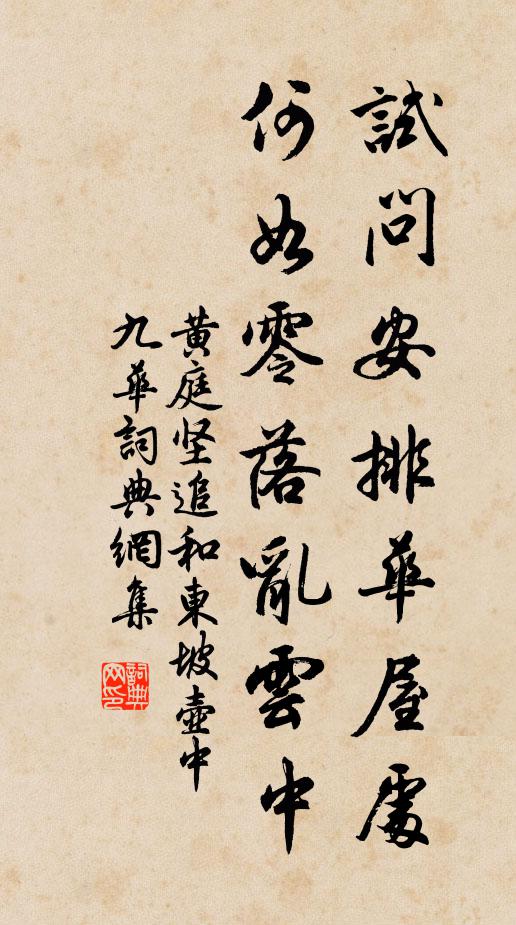 試問安排華屋處
何如零落亂雲中
黃庭坚追和東坡壺中
九華詞典網集
詞典網印